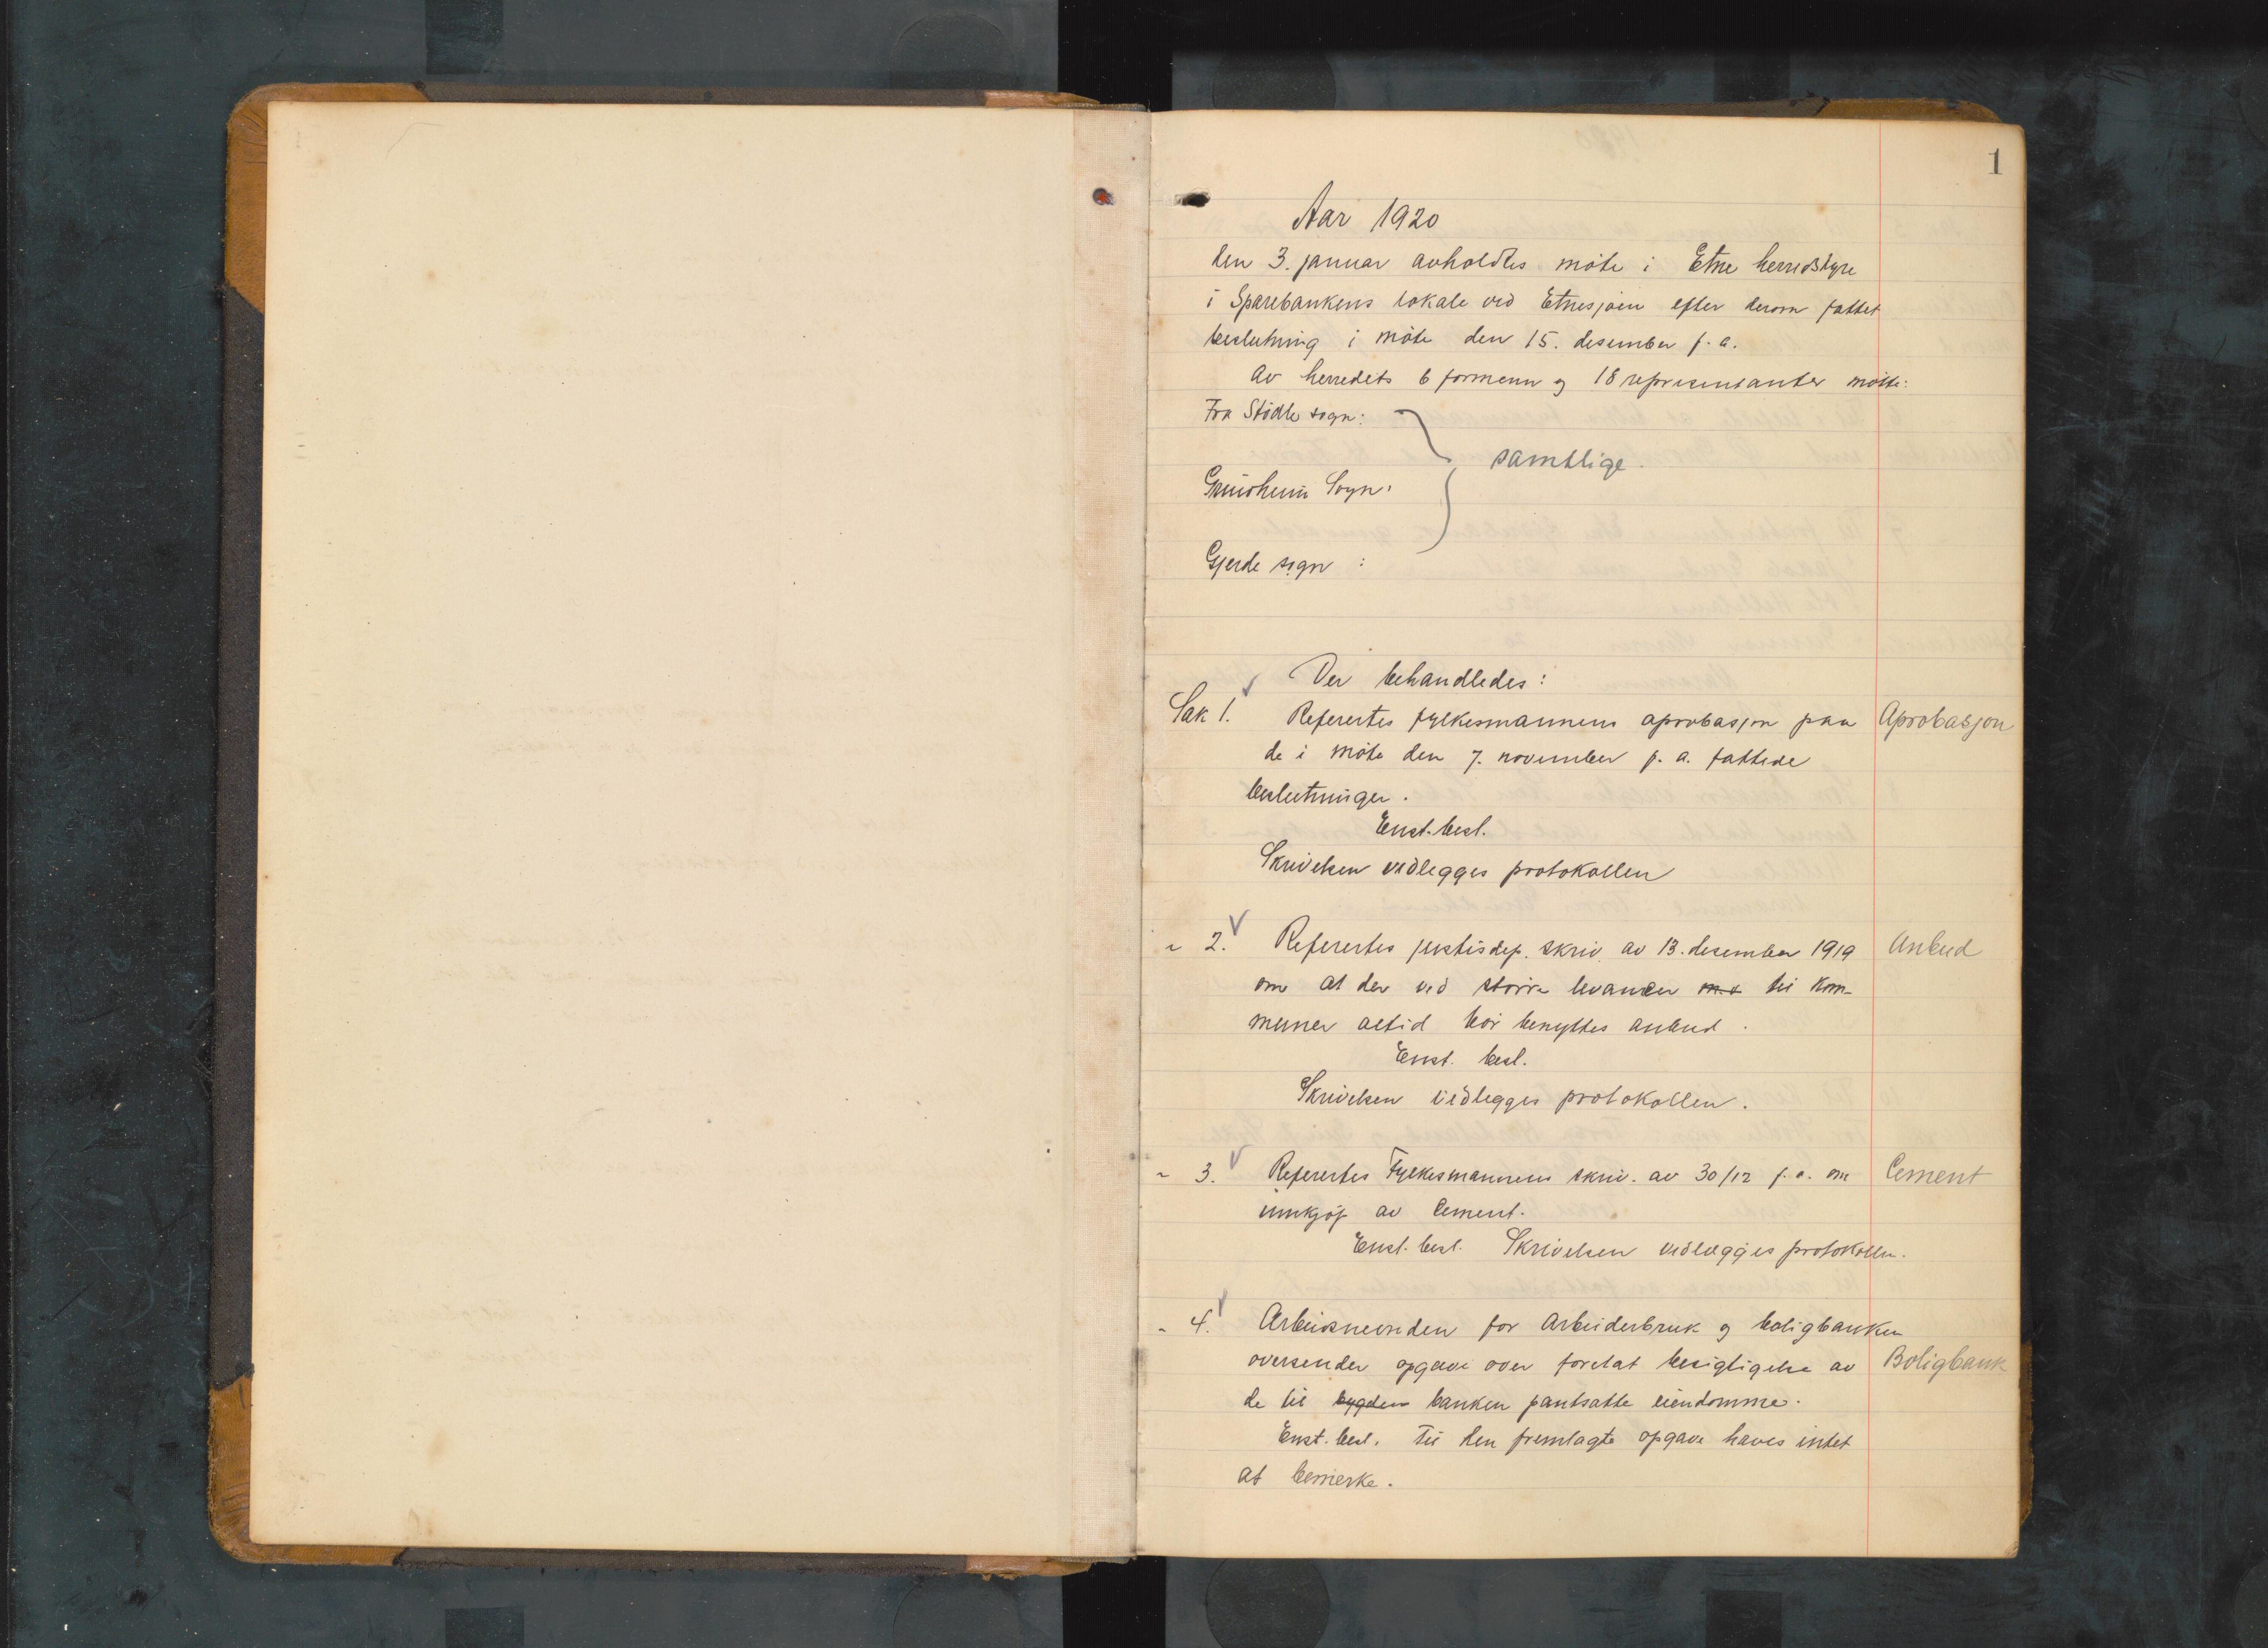 1
Aar 1920
den 3. januar avholdtes möte i Etne herredstyre
i Sparebankens lokale ved Etnesjöen efter derom fattet
beslutning i möte den 15. desember f. a.
Av herredets 6 formenn og 18 representanter mötte:
Fra Stödle sogn:
samtlige.
Grindheim Sogn:
Gjerde sogn :
Der behandledes:
Sak 1. Referertes fylkesmannens aprobasjon paa Aprobasjon
de i möte den 7. november f. a. fattede
beslutninger.
Enst. besl.
Skrivelsen vedlegges protokollen
" 2. Referertes justisdep. skriv. av 13. desember 1919 Anbud
om at der ved större levancer til kom-
muner altid bör benyttes anbud.
Enst. besl.
Skrivelsen vedlegges protokollen.
" 3. Referertes Fylkesmannens skriv. av 30/12 f. a. om Cement
innkjöp av Cement.
Enst. besl. Skrivelsen vedlægges protokollen.
" 4. Arbeisnevnden for Arbeiderbruk og boligbanken
oversender opgave over foretat besigtigelse av Boligbank
de til bygden banken pantsatte eiendomme.
Enst. besl. Til den fremlagte opgave haves intet
at bemerke.